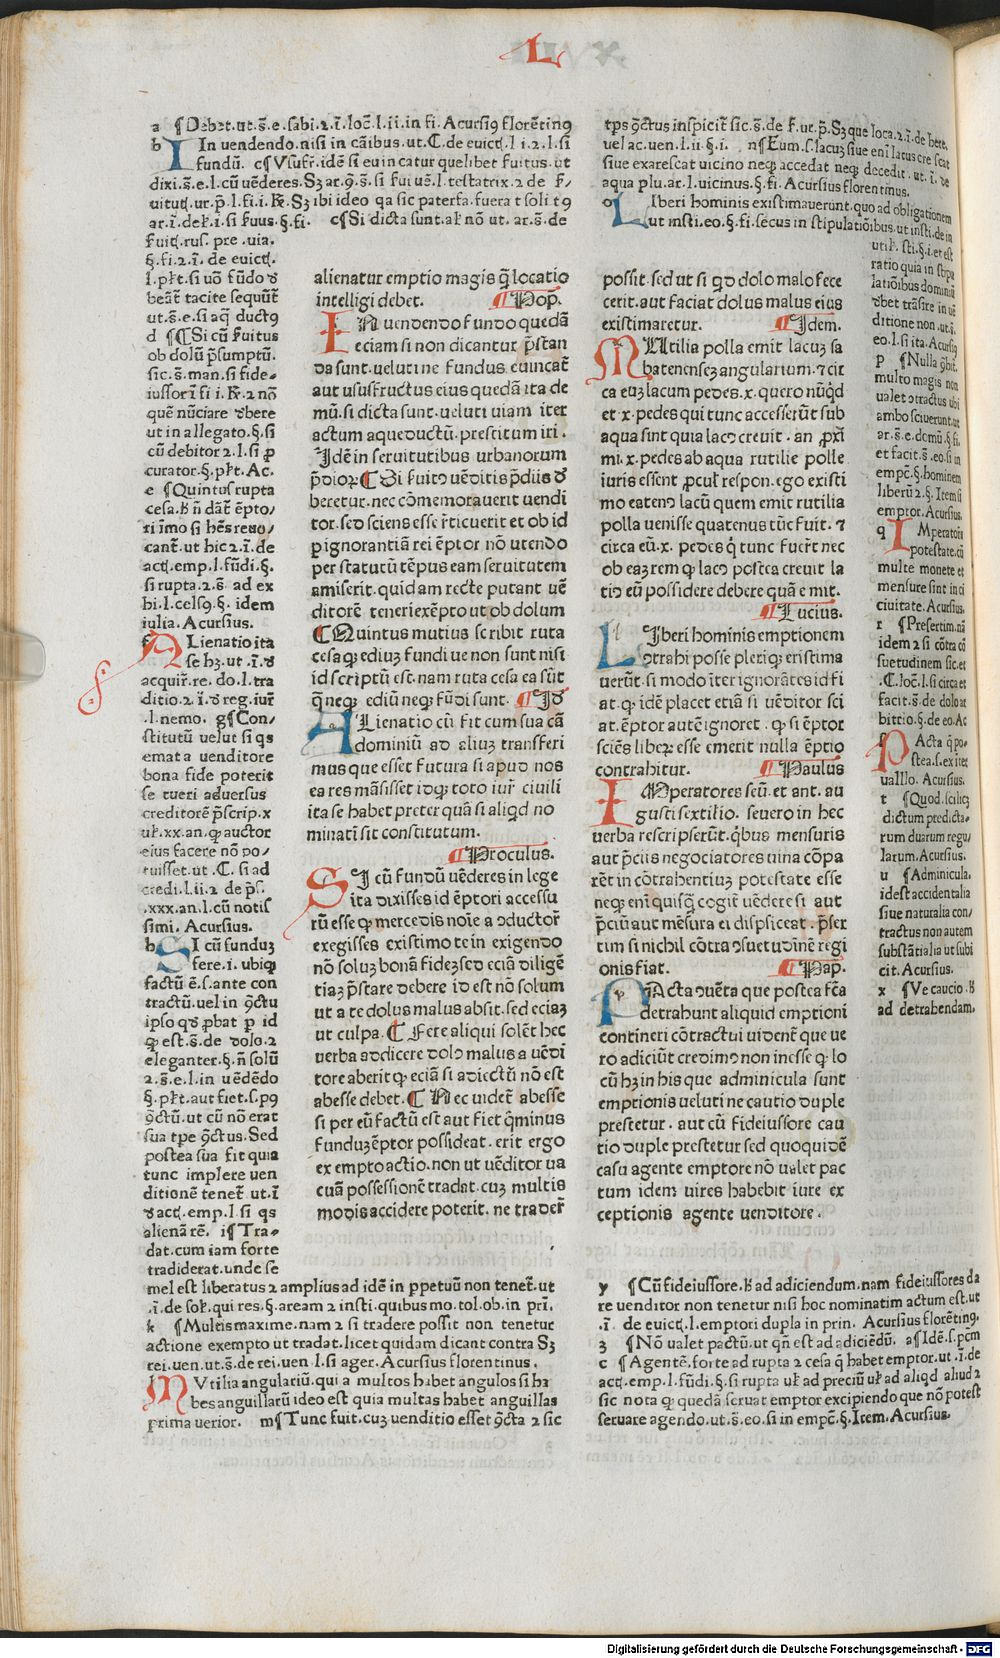 L
a ¶Debet.ut.s̄.e.sabi.2.ī.loc̄.l.ii.in fi.Acursiꝯ florētinꝯ
b IN uendendo.nisi in cāibus.ut.C.de euictꝭ.l i.2.l.si
fundū. c¶Vsufr̄.idē si euincatur quelibet ẜuitus.ut
dixi.s̄.e.l.cū uēderes.Sꝫ ar.ꝯ.s̄.si ẜui uē.l.testatrix.2 de ẜ/
uitutꝭ.ur.p̄.l.fi.i.R̄.Sꝫ ibi ideo qa sic paterfa.fuerat solitꝯ
ar.ī.de ł.ī.si ẜuus.§.fi. c¶Si dicta sunt.al̄ nō ut.ar.s̄.de
ẜuitꝭ.rus.pre.uia.
§.fi.2.ī.de euictꝭ.
l.pł̄t.si uō fūdo ꝺ
beāt̄ tacite sequūt̄
ut.s̄.e.si aq̄ ductꝯ
d ¶Si cū ẜuitus
ob dolū p̄sumptū.
sic.s̄.man.si fide-
iussor ī fi i.R̄.2 nō
quē nūciare ꝺbere
ut in allegato.§.si
cū debitor 2.l.si ꝓ
curator.§.pł̄t.Ac.
e ¶Quintus rupta
cesa.ł n̄ dāt̄ ēpto/
ri īmo si hēs reuo/
cant̄.ut hic 2.ī.de
actꝭ.emp.l.fūdi.§.
si rupta.2.s̄. ad ex
hi.l.celsꝯ.§. idem
iulia.Acursius.
f ALienatio ita
se hꝫ.ut .ī.ꝺ
acquir̄.re.do.l.tra
ditio.2.ī.ꝺ reg.iur̄
.l.nemo. g¶Con/
stitutū uelut si qs
emat a uenditore
bona fide poterit
se tueri aduersus
creditorē p̄scrip.x
ul̄.xx.an.ꝙ auctor
eius facere nō po/
tuisset.ut.C. si ad
credi.l.ii.2 de p̄s.
.xxx.an.l.cū notis
simi.Acursius.
h SI cū funduꝫ
fere.i.ubiqꝫ
factū ē.s.ante con
tractū.uel in ꝯctu
ipso qꝺ ꝓbat ꝑ id
ꝙ est.s̄.de dolo.2
eleganter.§.n̄ solū
2.s̄.e.l.in uēdēdo
§.pł̄t.aut fiet.s.pꝯ
ꝯctū.ut cū nō erat
sua tꝑe ꝯctus.Sed
postea sua fit quia
tunc implere uen
ditionē tenet̄.ut.ī
ꝺ actꝭ.emp.l.si qs
alienā rē. i¶Tra/
dat.cum iam forte
tradiderat.unde se
mel est liberatus 2 amplius ad idē in ꝑpetuū non tenet̄.ut
.ī.de sol̄.qui res.§.aream 2 insti.quibus mo.tol.ob.in prī.
k ¶Multis maxime.nam 2 si tradere possit non tenetur
actione exempto ut tradat.licet quidam dicant contra Sꝫ
rei.uen.ut.s̄.de rei.uen l.si ager.Acursius florentinus.
l MVtilia angulariū.qui a multos habet angulos si ha
bes anguillarū ideo est quia multas habet anguillas
prima uerior. m¶Tunc fuit.cuꝫ uenditio esset ꝯcta 2 sic
alienatur emptio magis q̄ locatio
intelligi debet. ¶Pop̄.
IN uendendo fundo quedā
eciam si non dicantur p̄stan
da sunt.uelut ine fundus euincat̄
aut ususfructus eius quedā ita de
mū.si dicta sunt.ueluti uiam iter
actum aqueductū.prestitum iri.
Idē in seruitutibus urbanorum
p̄dioꝝ.¶Si ẜuitꝯ uēditis p̄diis ꝺ
beretur.nec cōmemorauerit uendi
tor.sed sciens esse r̄ticuerit et ob id
ꝑ ignorantiā rei ēptor nō utendo
per statutū tēpus eam seruitutem
amiserit.quidam recte putant uē
ditorē teneri ex ēpto ut ob dolum
¶Quintus mutius scribit ruta
cesa qꝫ ediuꝫ fundi ue non sunt nisi
id scriptū est.nam ruta cesa ea sūt
q̄ neqꝫ ediū neqꝫ fūdi sunt. ¶Iꝺ
ALienatio cū fit cum sua cā
dominiū ad aliuꝫ transferi
mus que esset futura si apud nos
ea res mā sisset idqꝫ toto iur̄ ciuili
ita se habet preter quā si aliqd no
minatī sit constitutum.
¶Proculus.
SI cū fundū uēderes in lege
ita dixisses id ēptori accessu
rū esse ꝙ mercedis noīe a ꝯductor̄
exegisses existimo te in exigendo
nō soluꝫ bonā fideꝫ sed eciā diligē
tiaꝫ p̄stare debere id est nō solum
ut a te dolus malus absit.sed eciaꝫ
ut culpa.¶Fere aliqui solēt hec
uerba addicere dolꝯ malus a uēdi
tore aberit ꝙ eciā si adiectū nō est
abesse debet.¶Nec uidet̄ abesse
si per eū factū est aut fiet q̄minus
funduꝫ ēptor possideat.erit ergo
ex empto actio.non ut uēditor ua
cuā possessionē tradat.cuꝫ multis
modis accidere poterit.ne trader̄
tꝑs ꝯctus inspicit̄ sic.s̄.de ẜ.ut.p̄.Sꝫ que loca.2.ī.de bere,
uel ac.uen.l.ii.§.i. n¶Eum.s.lacuꝫ siue enī lacus crescat
siue exarescat uicino neqꝫ accedat neqꝫ decedit.ut.ī.de
aqua plu.ar.l.uicinus.§.fi.Acursius florentinus.
o LIberi hominis existimauerunt.quo ad obligationem
ut insti.eo.§.fi.secus in stipulatiōibus.ut insti.de in
util̄.sti.§.i.et est
ratio quia in stipu
latiōibus dominiū
ꝺbet trāsire in uē
ditione non.ut.s̄.
eo.l.si ita.Acursiꝯ
p ¶Nulla ꝯbit̄.
multo magis non
ualet ꝯtractus ubi
ambo sciuerunt.ut
ar.s̄.e.domū.§.fi.
et facit.s̄.eo.si in
empc̄.§.hominem
liberū 2.§.Item si
emptor.Acursius.
q IMperatores
potestate.cū
multe monete et
mensure sint in ci
ciuitate.Acursius.
r ¶Presertim.nā
idem 2 si cōtra cō
suetudinem sic.et
.C.loc̄.l.si circa et
facit.s̄.de dolo ar
bitrio.§.de eo.Ac
s PActa q̄ po/
stea.s.ex iter
uallo.Acursius.
t ¶Quod.scilicꝫ
dictum predicta/
rum duarum regu/
larum.Acursius.
u ¶Adminicula.
id est accidentalia
siue naturalia con/
tractus non autem
substātialia ut subi
cit.Acursius.
x ¶Ve caucio.ł
ad detrahendam.
possit.sed ut si qꝺ dolo malo fece
cerit.aut faciat dolus malus eius
existimaretur. ¶Idem.
MUtilia polla emit lacuꝫ sa
batenenseꝫ angularium.⁊ cir
ca euꝫ lacum pedes.x.quero nūqd
et.x.pedes qui tunc accesserūt sub
aqua sint quia lacꝯ creuit.an ꝓxī
mi.x.pedes ab aqua rutilie polle
iuris essent ꝓcul̄ respon.ego existi
mo eatenꝯ lacū quem emit rutilia
polla uenisse quatenus tūc fuit.⁊
circa eū.x.pedes q̄ tunc fuer̄t nec
ob eaꝫ rem ꝙ lacꝯ postea creuit la
tiꝯ eū possidere debere quā emit.
¶Lucius.
LIberi hominis emptionem
ꝯtrahi posse pleriqꝫ existima
uerūt.si modo īter ignorātes id fi
at.ꝙ idē placet etiā si uēditor sci
at.ēptor autē ignoret.ꝙ si ēptor
sciēs liberꝫ esse emerit nulla ēptio
contrahitur. ¶Paulus
IMperatores seū.et ant.au
gusti sextilio.seuero in hec
uerba rescripserūt.qbus mensuris
aut p̄ciis negociatores uina cōpa
rēt in cōtrahentiuꝫ potestate esse
neqꝫ eni quisqꝫ cogit̄ uēdere si aut
p̄ciū aut mēsura ei displiceat.p̄ser
tim si nichil cōtra ꝯsuetudinē regi
onis fiat. ¶Pap.
PActa ꝯuēta que postea fc̄a
detrahunt aliquid emptioni
contineri cōtractui uident̄ que ue
ro adiciūt credimꝯ non inesse ꝙ lo
cū hꝫ in his que adminicula sunt
emptionis ueluti ne cautio duple
prestetur.aut cū fideiussore cau
tio duple prestetur sed quo quidē
casu agente emptore nō ualet pac
tum idem uires habebit iure ex
ceptionis agente uenditore.
y ¶Cū fideiussore.ł ad adiciendum.nam fideiussores da
re uenditor non tenetur nisi hoc nominatim actum est.ut
.ī. de euictꝭ.l.emptori dupla in prin.Acursius florētinꝯ.
ꝫ ¶Nō ualet pactū.ut qn̄ est ad adiciēdū. a¶Idē.s.pc̄m
c ¶Agentē.forte ad rupta 2 cesa q̄ habet emptor.ut.ī.de
actꝭ.emp.l.fūdi.§.si rupta ul̄ ad preciū ul̄ ad aliqd aliud 2
sic nota ꝙ quedā seruat emptor excipiendo que nō potest
seruare agendo.ut.s̄.eo.si in empc̄.§.Item.Acursius.
Digitalisierung gefördert durch die Deutsche Forschungsgemeinschaft - DFG